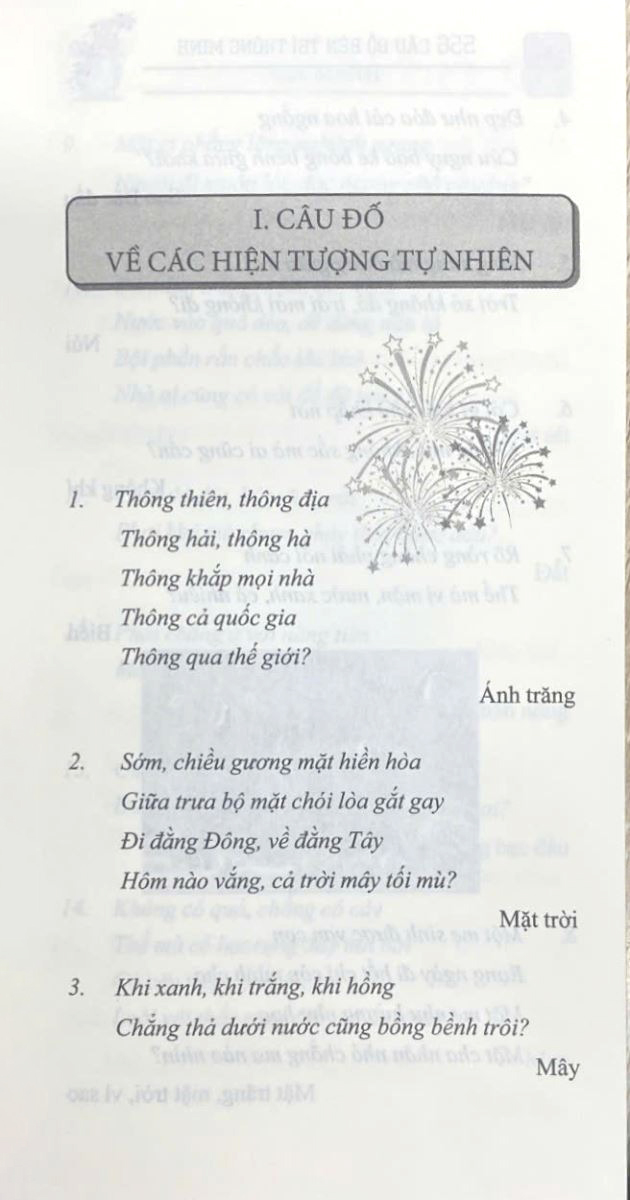 I. CÂU ĐỐ
VỀ CÁC HIỆN TƯỢNG TỰ NHIÊN
1. Thông thiên, thông địa
Thông hải, thông hà
Thông khắp mọi nhà
Thông cả quốc gia
Thông qua thế giới?
Ánh trăng
2. Sớm, chiều gương mặt hiền hòa
Giữa trưa bộ mặt chói lòa gắt gay
Đi đằng Đông, về đằng Tây
Hôm nào vắng, cả trời mây tối mù?
Mặt trời
3. Khi xanh, khi trắng, khi hồng
Chẳng thả dưới nước cũng bồng bềnh trôi?
Mây